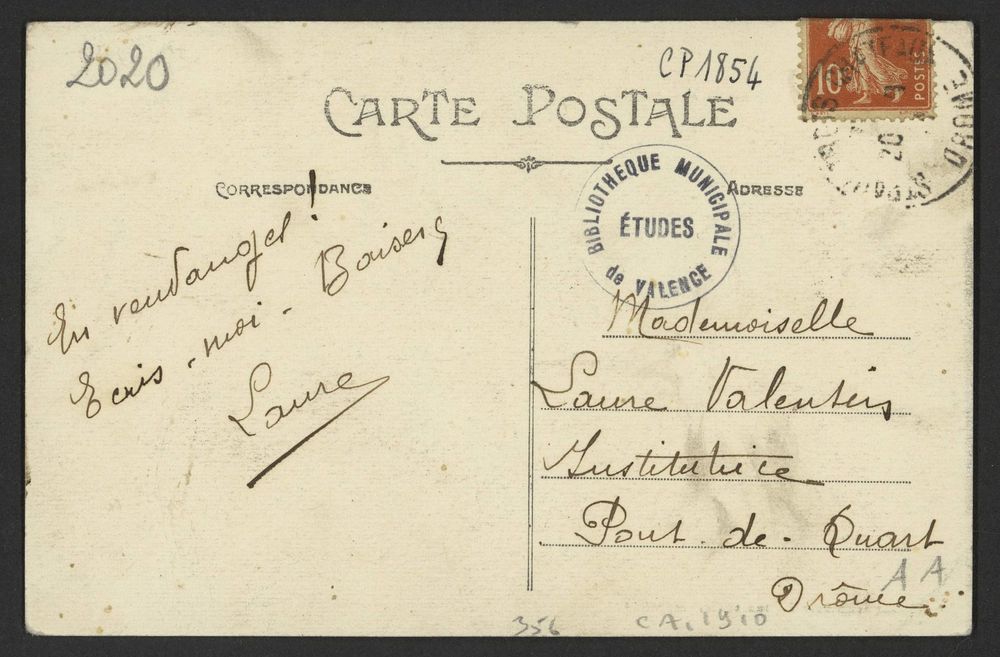 2020
CP1854
CARTE POSTALE
10
POSTES
20
DROME
CORRESPONDANCE
ADRESSE
BIBLIOTHEQUE MUNICIPALE
ÉTUDES
de VALENCE
En vendanges!
Ecris-moi. Baisers
Laure
Mademoiselle
Laure Valentin
Institutrice
Pont-de-Quart
Drôme
A A
356
CA.1910